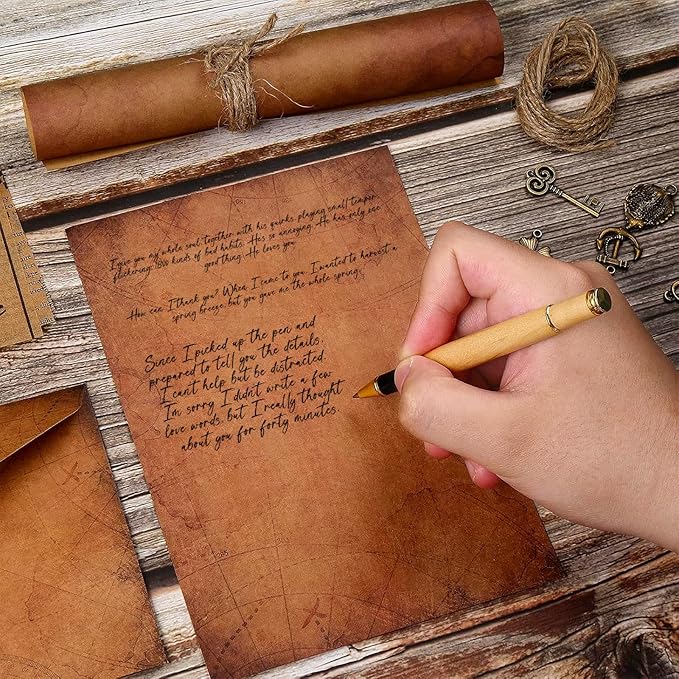 I give you my whole soul together with his quirks playing small temper
flickering. 1800 kinds of bad habits. He's so annoying. He has only one
good thing. He loves you.
How can I thank you? When I came to you. I wanted to harvest a
spring breeze. but you gave me the whole spring.
Since I picked up the pen and
prepared to tell you the details.
I can't help but be distracted.
I'm sorry I didn't write a few
love words. but I really thought
about you for forty minutes.